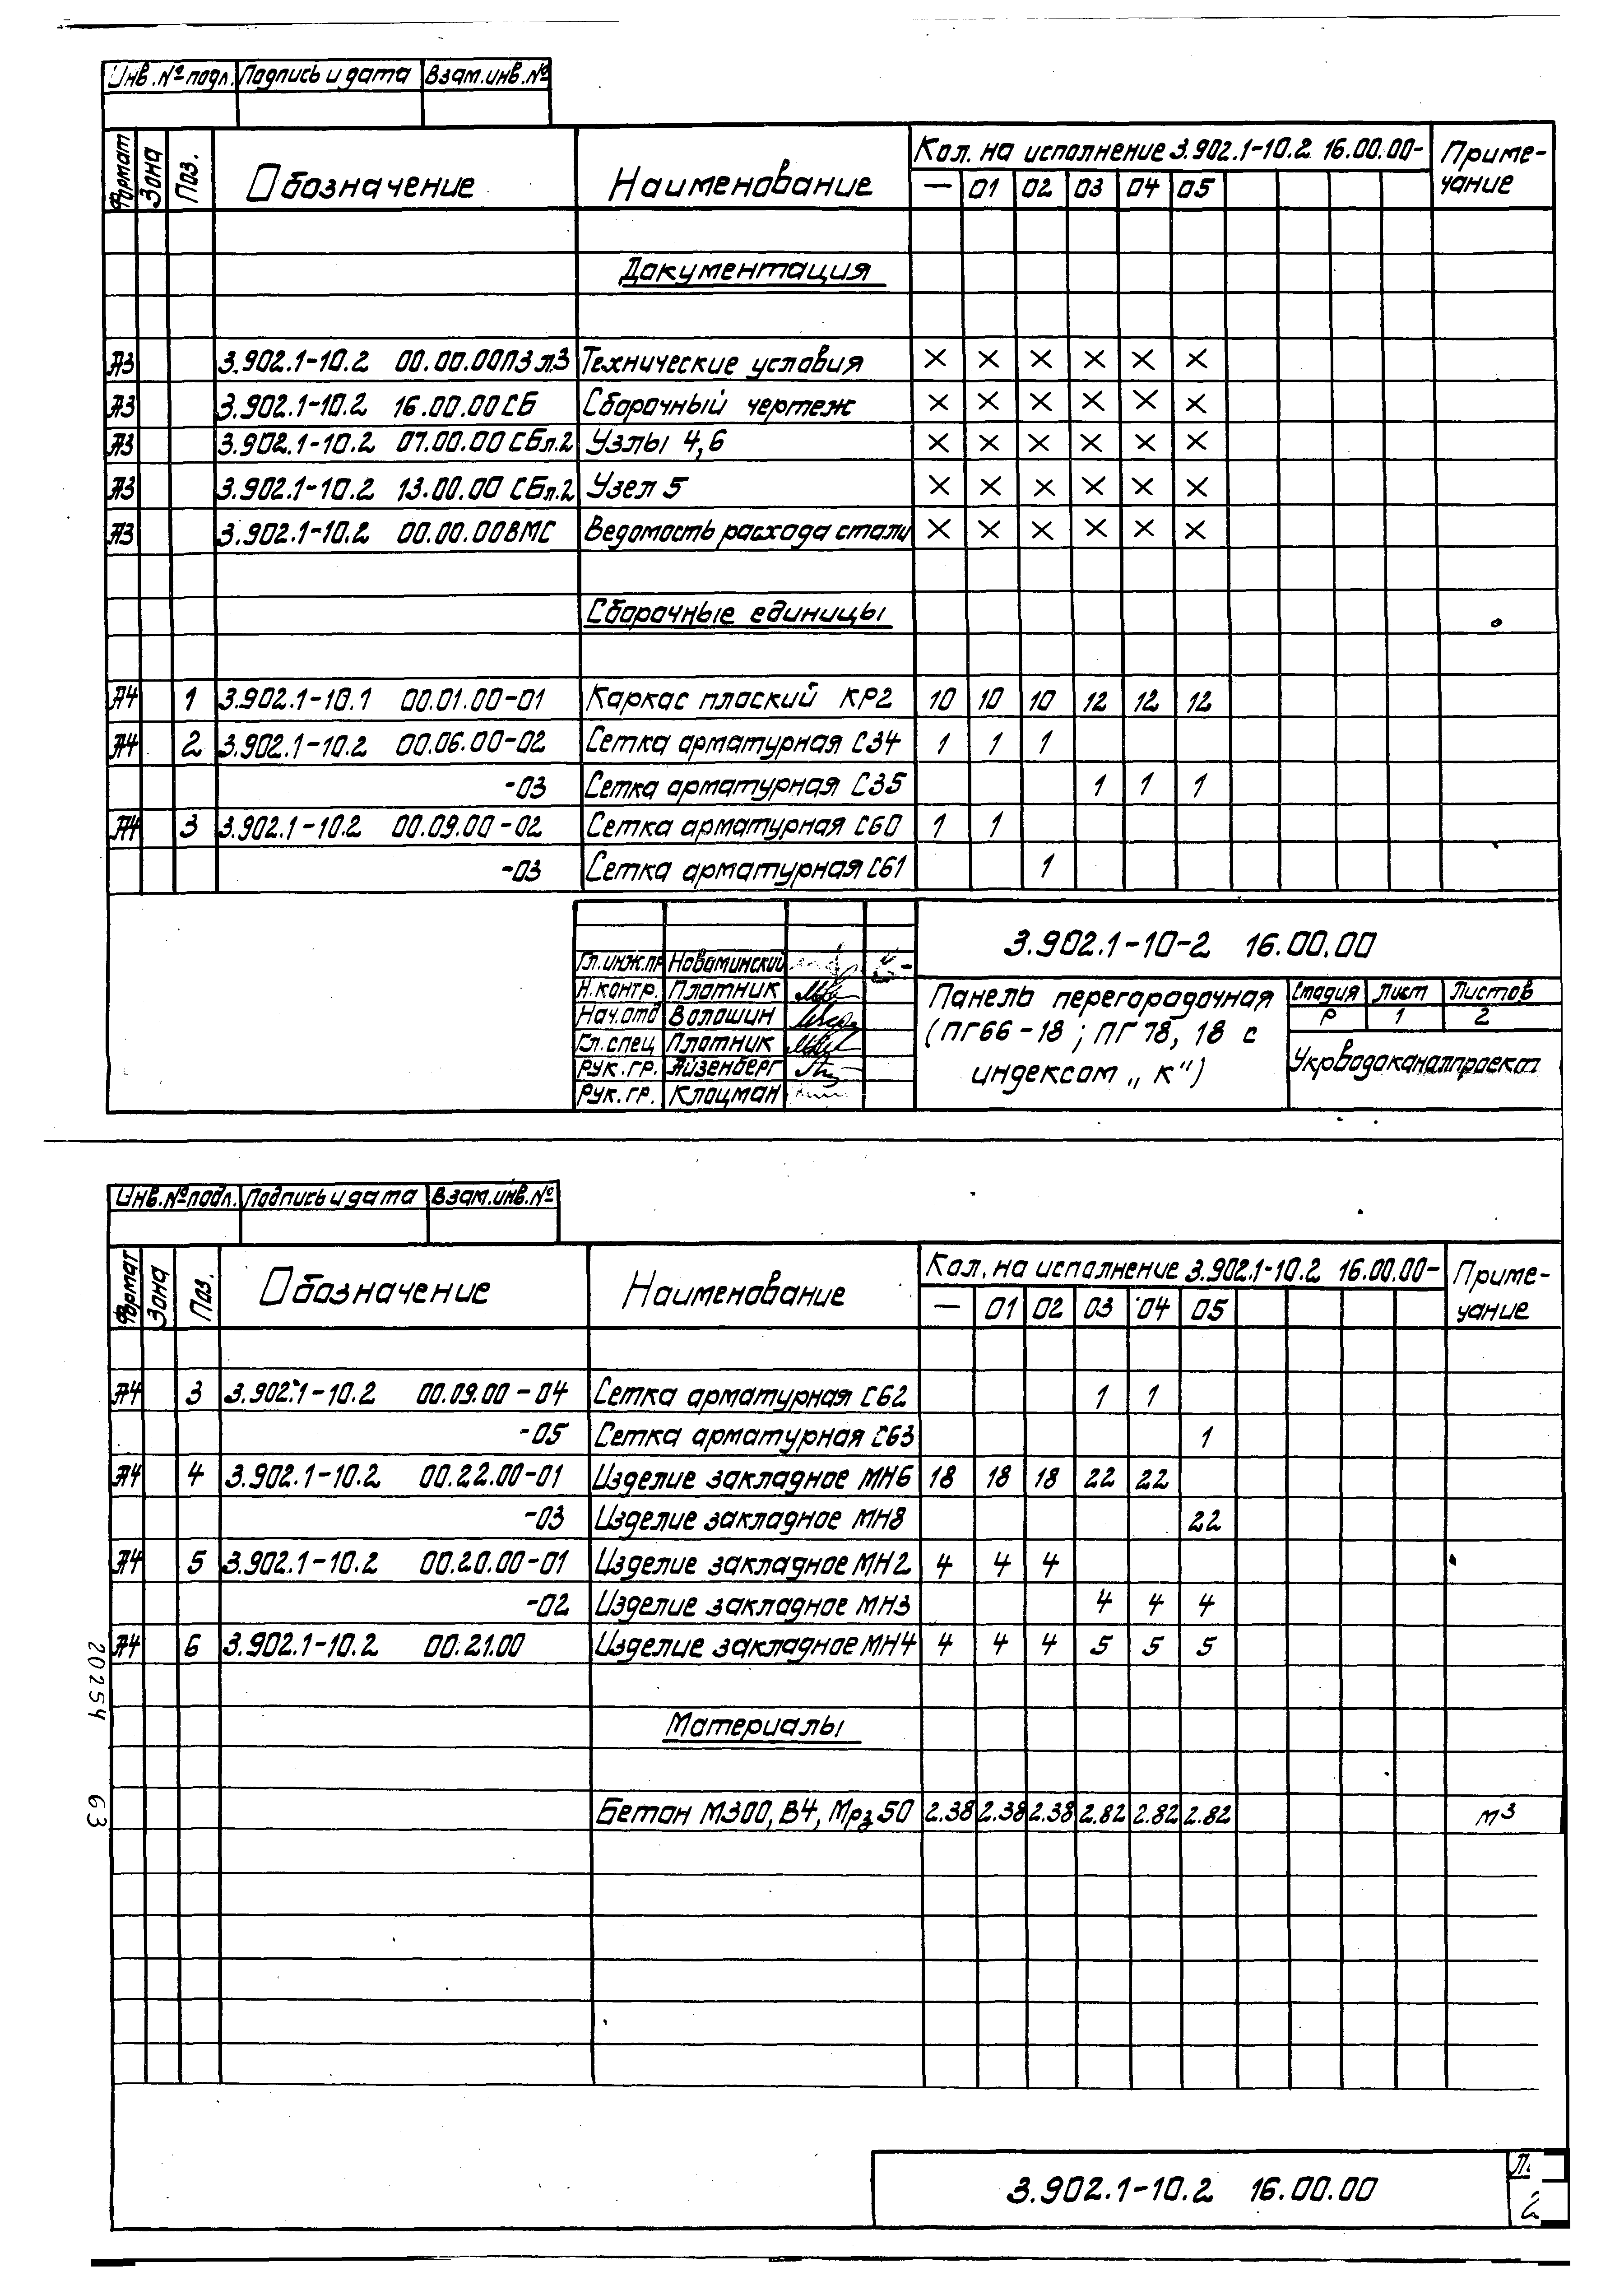 Инв.№подл. Подпись и дата Взам.инв.№
Формат Зона Поз. Обозначение Наименование Кол. на исполнение 3.902.1-10.2 16.00.00- Примечание
— 01 02 03 04 05
Документация
А3 3.902.1-10.2 00.00.00ПЗ л.3 Технические условия × × × × × ×
А3 3.902.1-10.2 16.00.00СБ Сборочный чертеж × × × × × ×
А3 3.902.1-10.2 07.00.00 СБл.2 Узлы 4,6 × × × × × ×
А3 3.902.1-10.2 13.00.00 СБл.2 Узел 5 × × × × × ×
А3 3.902.1-10.2 00.00.00ВМС Ведомость расхода стали × × × × × ×
Сборочные единицы
А4 1 3.902.1-10.1 00.01.00-01 Каркас плоский КР2 10 10 10 12 12 12
А4 2 3.902.1-10.2 00.06.00-02 Сетка арматурная С34 1 1 1
-03 Сетка арматурная С35 1 1 1
А4 3 3.902.1-10.2 00.09.00-02 Сетка арматурная С60 1 1
-03 Сетка арматурная С61 1
3.902.1-10-2 16.00.00
Гл.инж.пр Новоминский
Н.контр. Плотник
Нач.отд Волошин
Гл.спец Плотник
Рук.гр. Айзенберг
Рук.гр. Клоцман
Панель перегородочная
(ПГ66-18; ПГ78, 18 с
индексом „к")
Стадия Лист Листов
Р 1 2
Укрводоканалпроект
Инв.№подл. Подпись и дата Взам.инв.№
Формат Зона Поз. Обозначение Наименование Кол. на исполнение 3.902.1-10.2 16.00.00- Примечание
— 01 02 03 04 05
А4 3 3.902.1-10.2 00.09.00-04 Сетка арматурная С62 1 1
-05 Сетка арматурная С63 1
А4 4 3.902.1-10.2 00.22.00-01 Изделие закладное МН6 18 18 18 22 22
-03 Изделие закладное МН8 22
А4 5 3.902.1-10.2 00.20.00-01 Изделие закладное МН2 4 4 4
-02 Изделие закладное МН3 4 4 4
А4 6 3.902.1-10.2 00.21.00 Изделие закладное МН4 4 4 4 5 5 5
Материалы
Бетон М300, В4, Мрз50 2.38 2.38 2.38 2.82 2.82 2.82 м³
20254 63
3.902.1-10.2 16.00.00
2